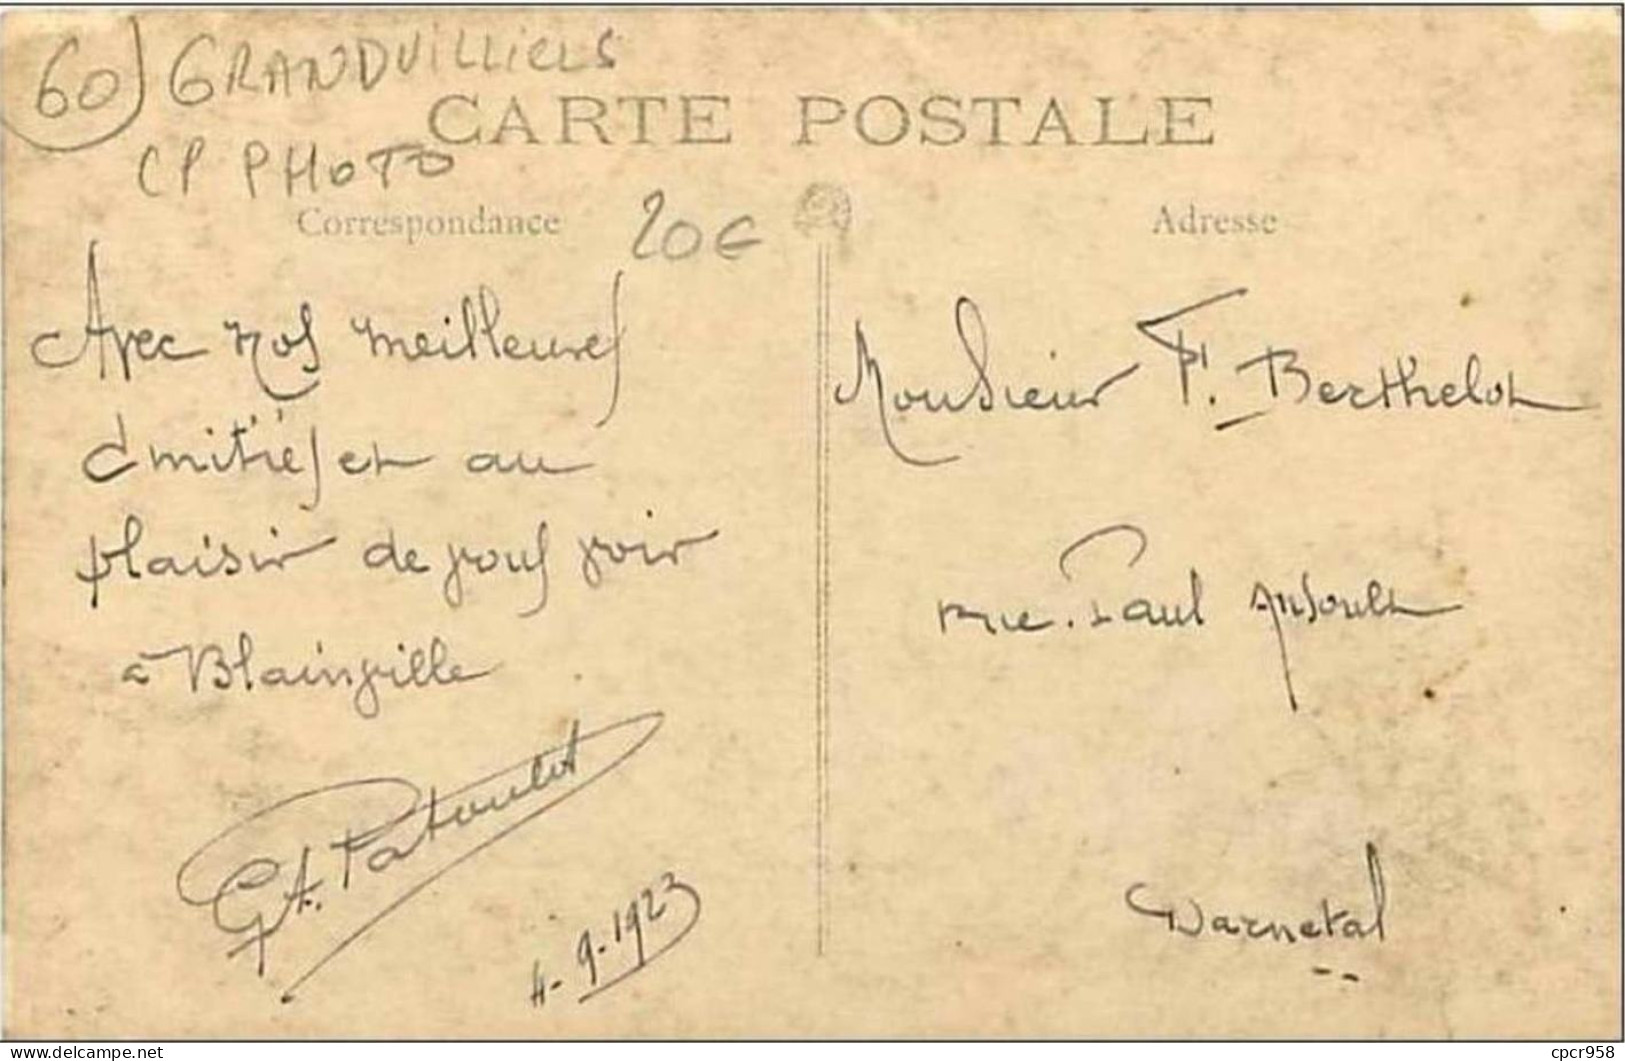 60) GRANDVILLIERS
CARTE POSTALE
CP PHOTO
Correspondance
20€
Avec nos meilleures
amitiés et au
plaisir de vous voir
à Blainville
G A. Patoulot
4-9-1923
Adresse
Monsieur F. Berthelot
rue Paul
Darnetal
cpcr958